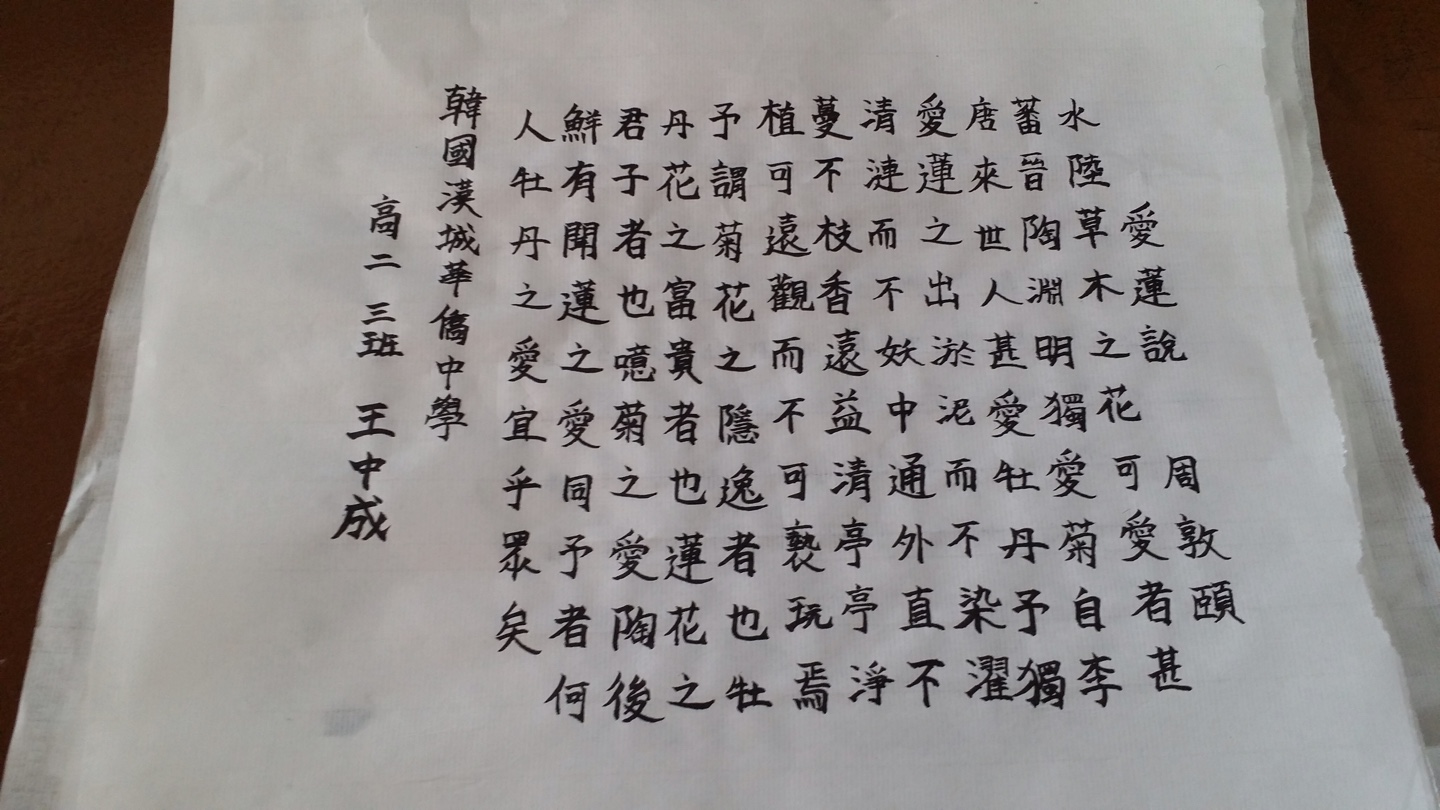 愛蓮說 周敦頤
水陸草木之花可愛者甚
蓄晉陶淵明獨愛菊自李
唐來世人甚愛牡丹予獨
愛蓮之出淤泥而不染濯
清漣而不妖中通外直不
蔓不枝香遠益清亭亭淨
植可遠觀而不可褻玩焉
予謂菊花之隱逸者也牡
丹花之富貴者也蓮花之
君子者也噫菊之愛陶後
鮮有聞蓮之愛同予者何
人牡丹之愛宜乎眾矣
韓國漢城華僑中學
高二 三班 王中成